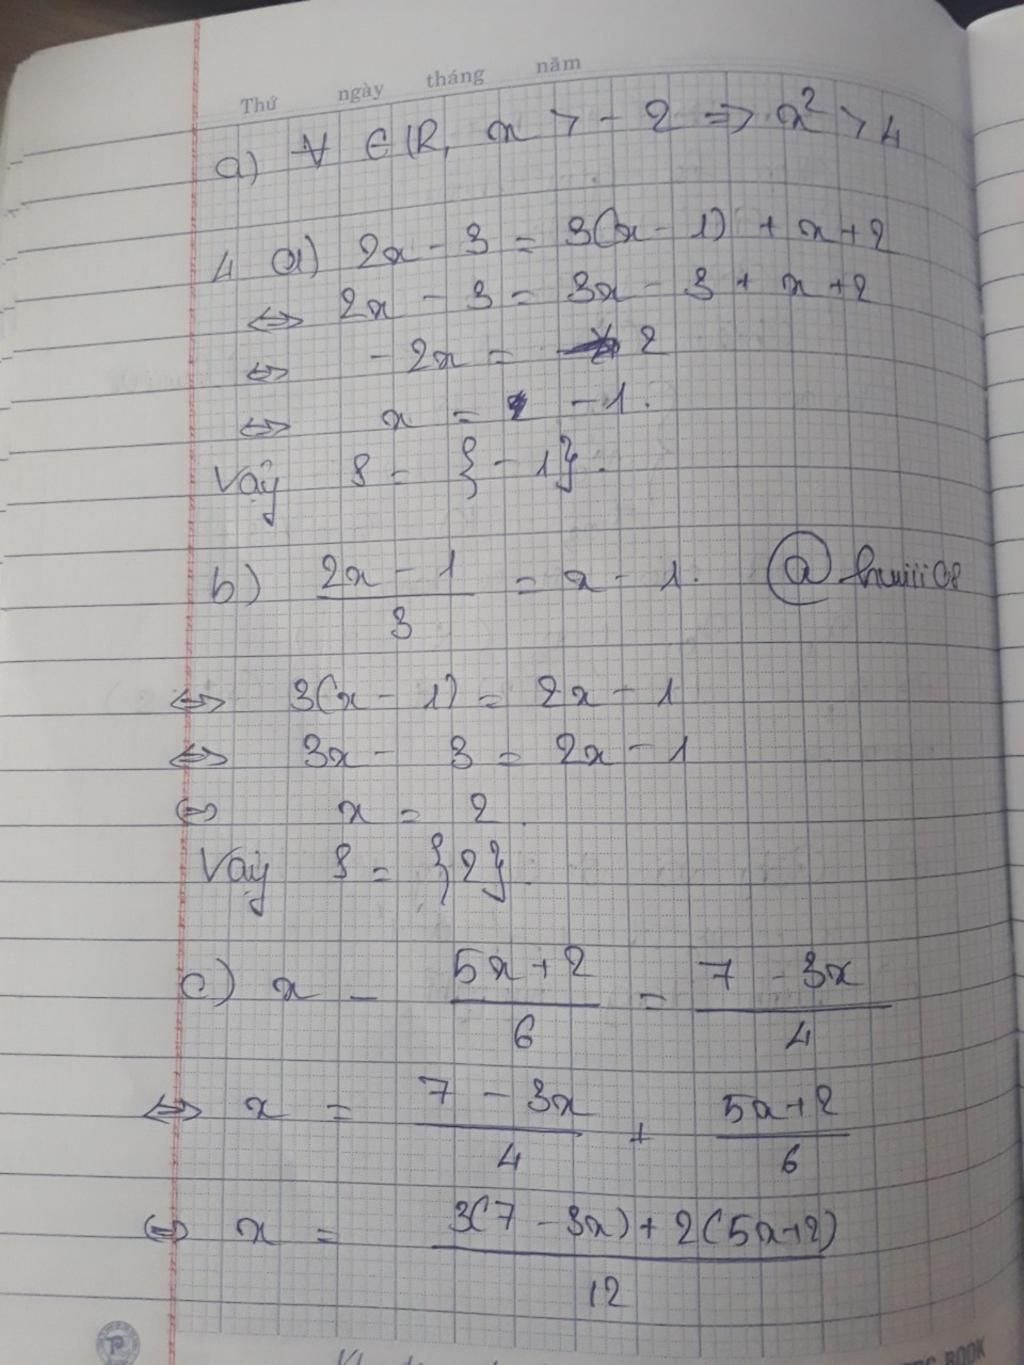 Thứ ngày tháng năm
a) ∀ ∈ ℝ, x > - 2 => x² > 4
4 a) 2x - 3 = 3(x - 1) + x + 2
⇔ 2x - 3 = 3x - 3 + x + 2
⇔ - 2x = 2
⇔ x = - 1.
Vậy S = {- 1}.
b) \frac{2x - 1}{3} = x - 1. @ hwiii08
⇔ 3(x - 1) = 2x - 1
⇔ 3x - 3 = 2x - 1
⇔ x = 2.
Vậy S = {2}.
c) x - \frac{5x + 2}{6} = \frac{7 - 3x}{4}
⇔ x = \frac{7 - 3x}{4} + \frac{5x + 2}{6}
⇔ x = \frac{3(7 - 3x) + 2(5x + 2)}{12}
BOOK